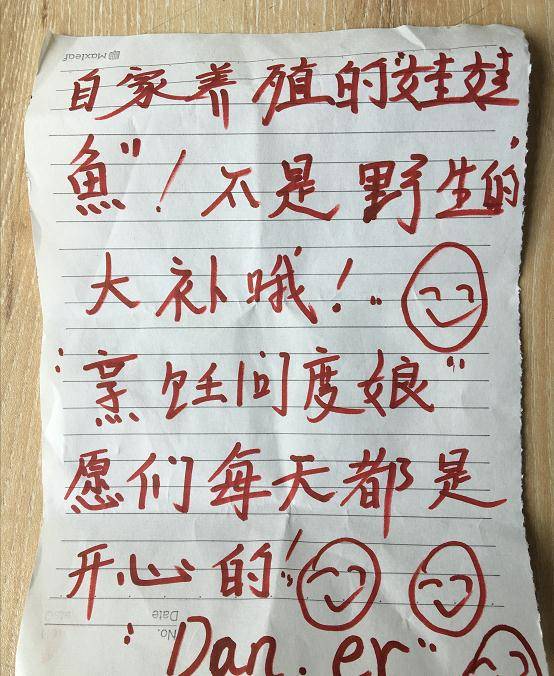 Maxleaf
自家养殖的"娃娃
魚"！不是野生的
大补哦！
"烹饪问度娘"
愿们每天都是
开心的！
No.
Date
"Dan.er"